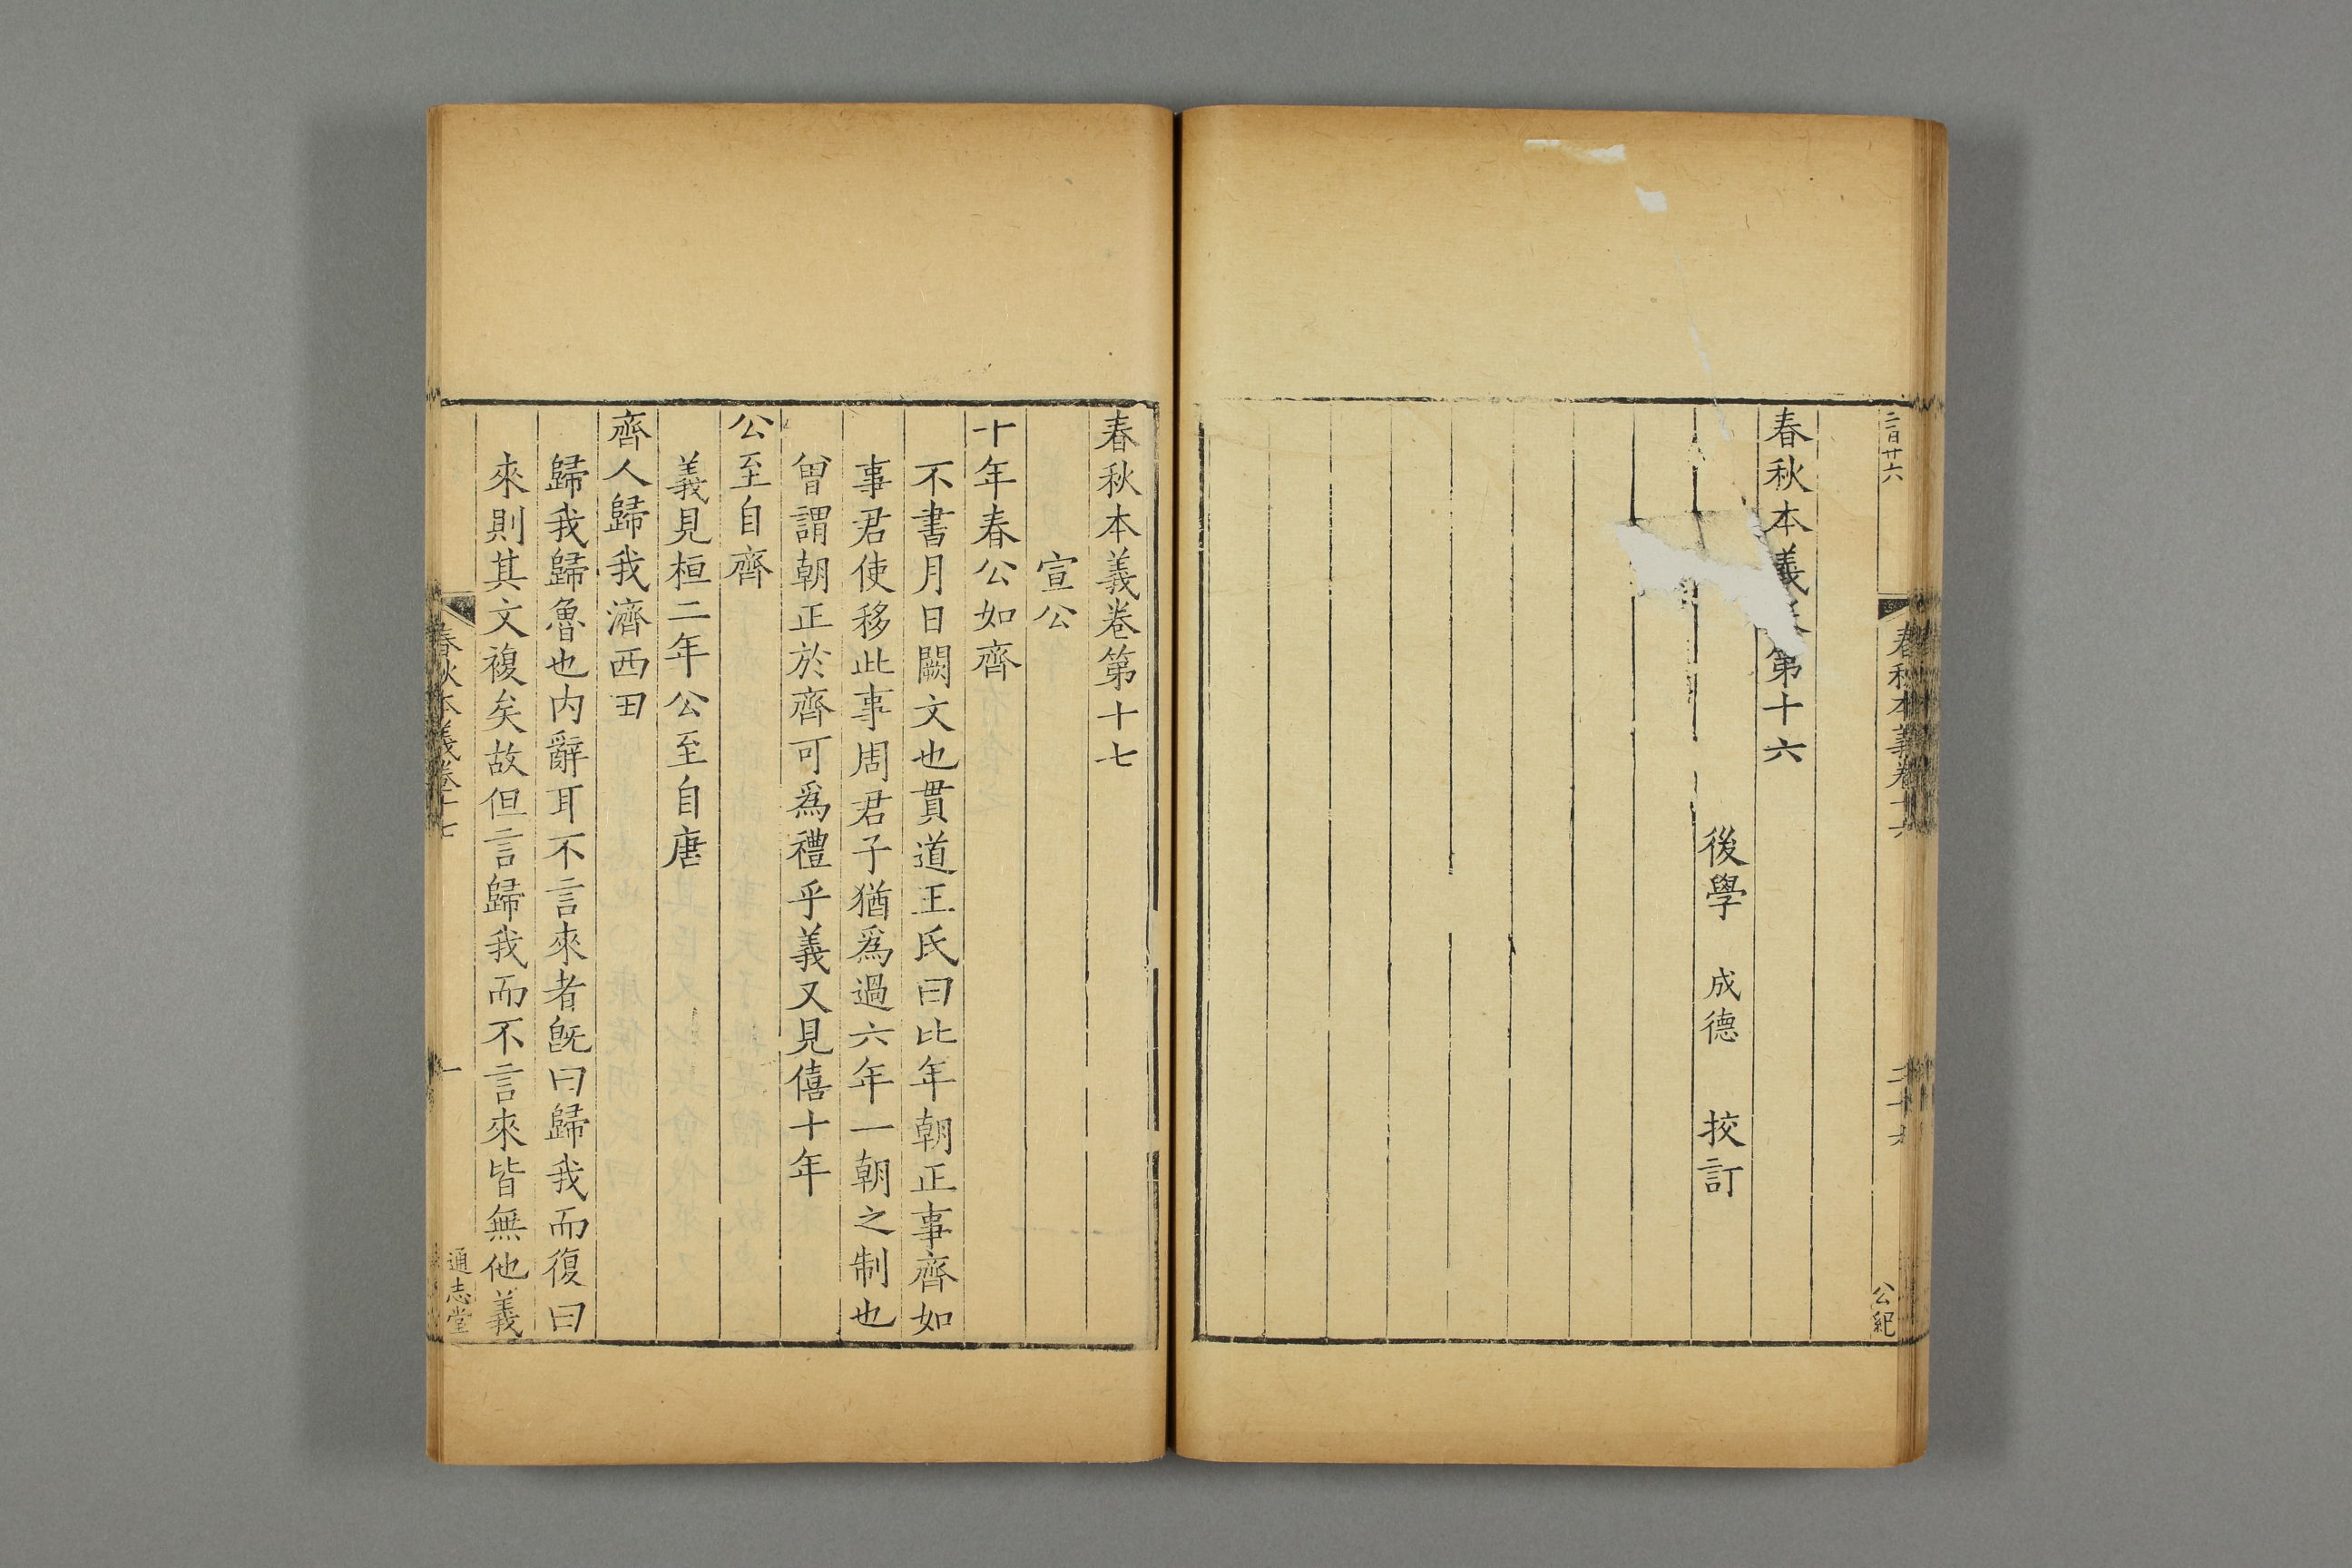 春秋本義卷十六
公紀
春秋本義第十六
後學 成德 挍訂
春秋本義卷第十七
宣公
十年春公如齊
不書月日闕文也貫道王氏曰比年朝正事齊如
事君使移此事周君子猶爲過六年一朝之制也
曾謂朝正於齊可爲禮乎義又見僖十年
公至自齊
義見桓二年公至自唐
齊人歸我濟西田
歸我歸魯也内辭耳不言來者旣曰歸我而復曰
來則其文複矣故但言歸我而不言來皆無他義
春秋本義卷十七
一
通志堂